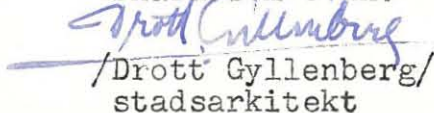 Drott Gyllenberg
/Drott Gyllenberg/
stadsarkitekt